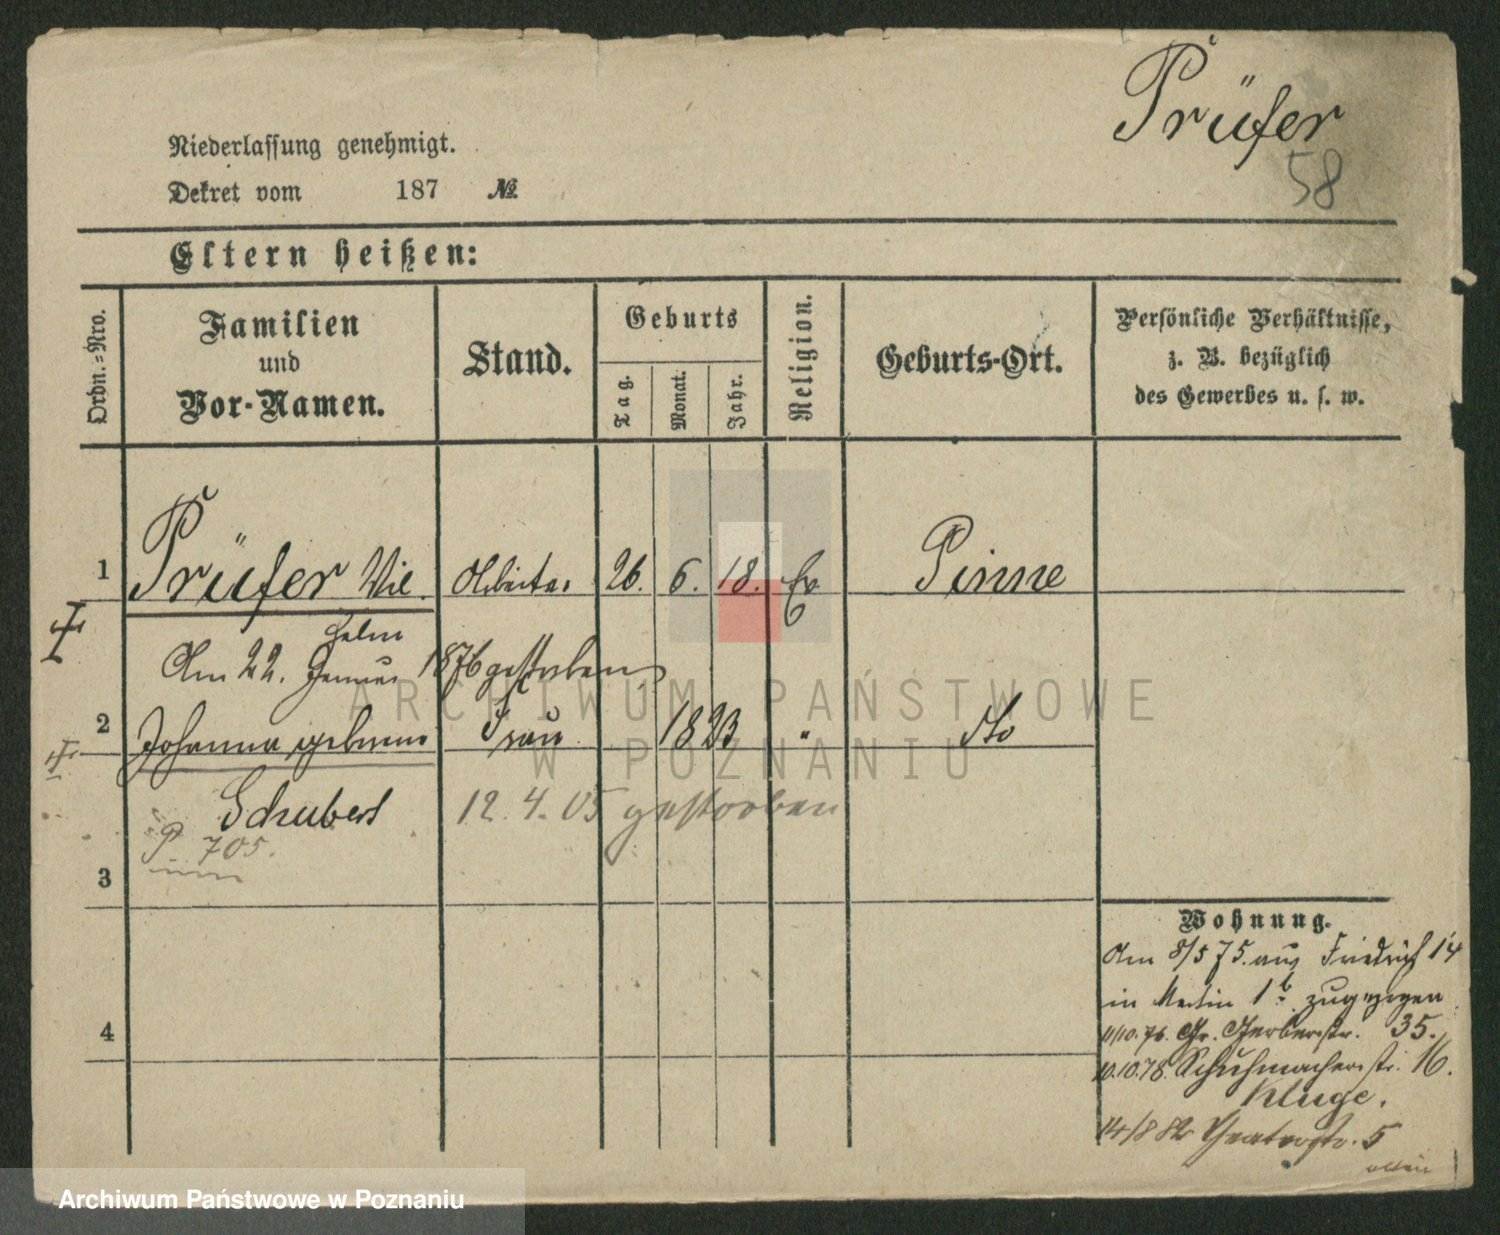 Prüfer
58
Niederlassung genehmigt.
Dekret vom 187 №
Eltern heißen:
Ordn.=Nro.
Familien
und
Vor-Namen.
Stand.
Geburts
Tag.
Monat.
Jahr.
Religion.
Geburts-Ort.
Persönliche Verhältnisse,
z. B. bezüglich
des Gewerbes u. s. w.
1 Prüfer Wil. Arbeiter 26. 6. 18. Ev Pinne
helm
Am 22. Januar 1876 gestorben
2 Johanna geborene Frau 1823 " dto
Schubert 12.4.05 gestorben
P 705.
3
4
Wohnung.
Am 8/5 75. aus Friedrich 14
in Martin 1 b. zugezogen
11/10. 76. Gr. Gerberstr. 35.
10.10.78. Schuhmacherstr. 16.
Kluge.
14/8 82 Theaterstr. 5
allein
ARCHIWUM PAŃSTWOWE
W POZNANIU
Archiwum Państwowe w Poznaniu